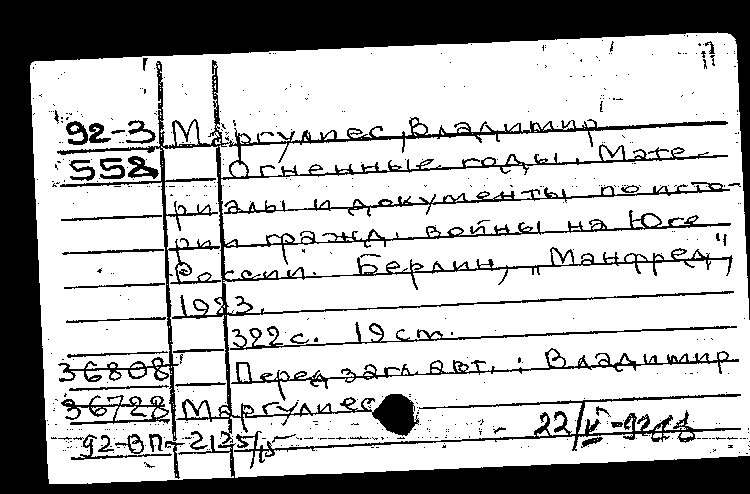 92-3 Маргулиес, Владимир
558 Огненные годы. Мате-
риалы и документы по исто-
рии гражд. войны на Юге
России. Берлин, „Манфред",
1923.
322 с. 19 cm.
36808 Перед загл. авт.: Владимир
36728 Маргулиес
92-ВП-2125/15 22/V-92